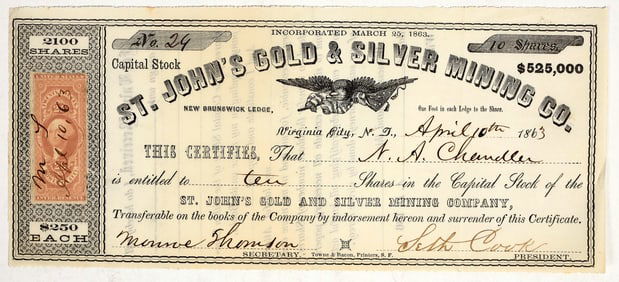 2100
SHARES
$250
EACH
Apl 10 63
INCORPORATED MARCH 25, 1863.
No. 29
10 Shares.
Capital Stock
$525,000
ST. JOHN'S GOLD & SILVER MINING CO.
NEW BRUNSWICK LEDGE,
One Foot in each Ledge to the Share.
Virginia City, N. T., April 10th 1863
THIS CERTIFIES, That N. A. Chandler
is entitled to ten Shares in the Capital Stock of the
ST. JOHN'S GOLD AND SILVER MINING COMPANY,
Transferable on the books of the Company by indorsement hereon and surrender of this Certificate.
Monroe Thomson
Seth Cook
SECRETARY.
Towne & Bacon, Printers, S. F.
PRESIDENT.